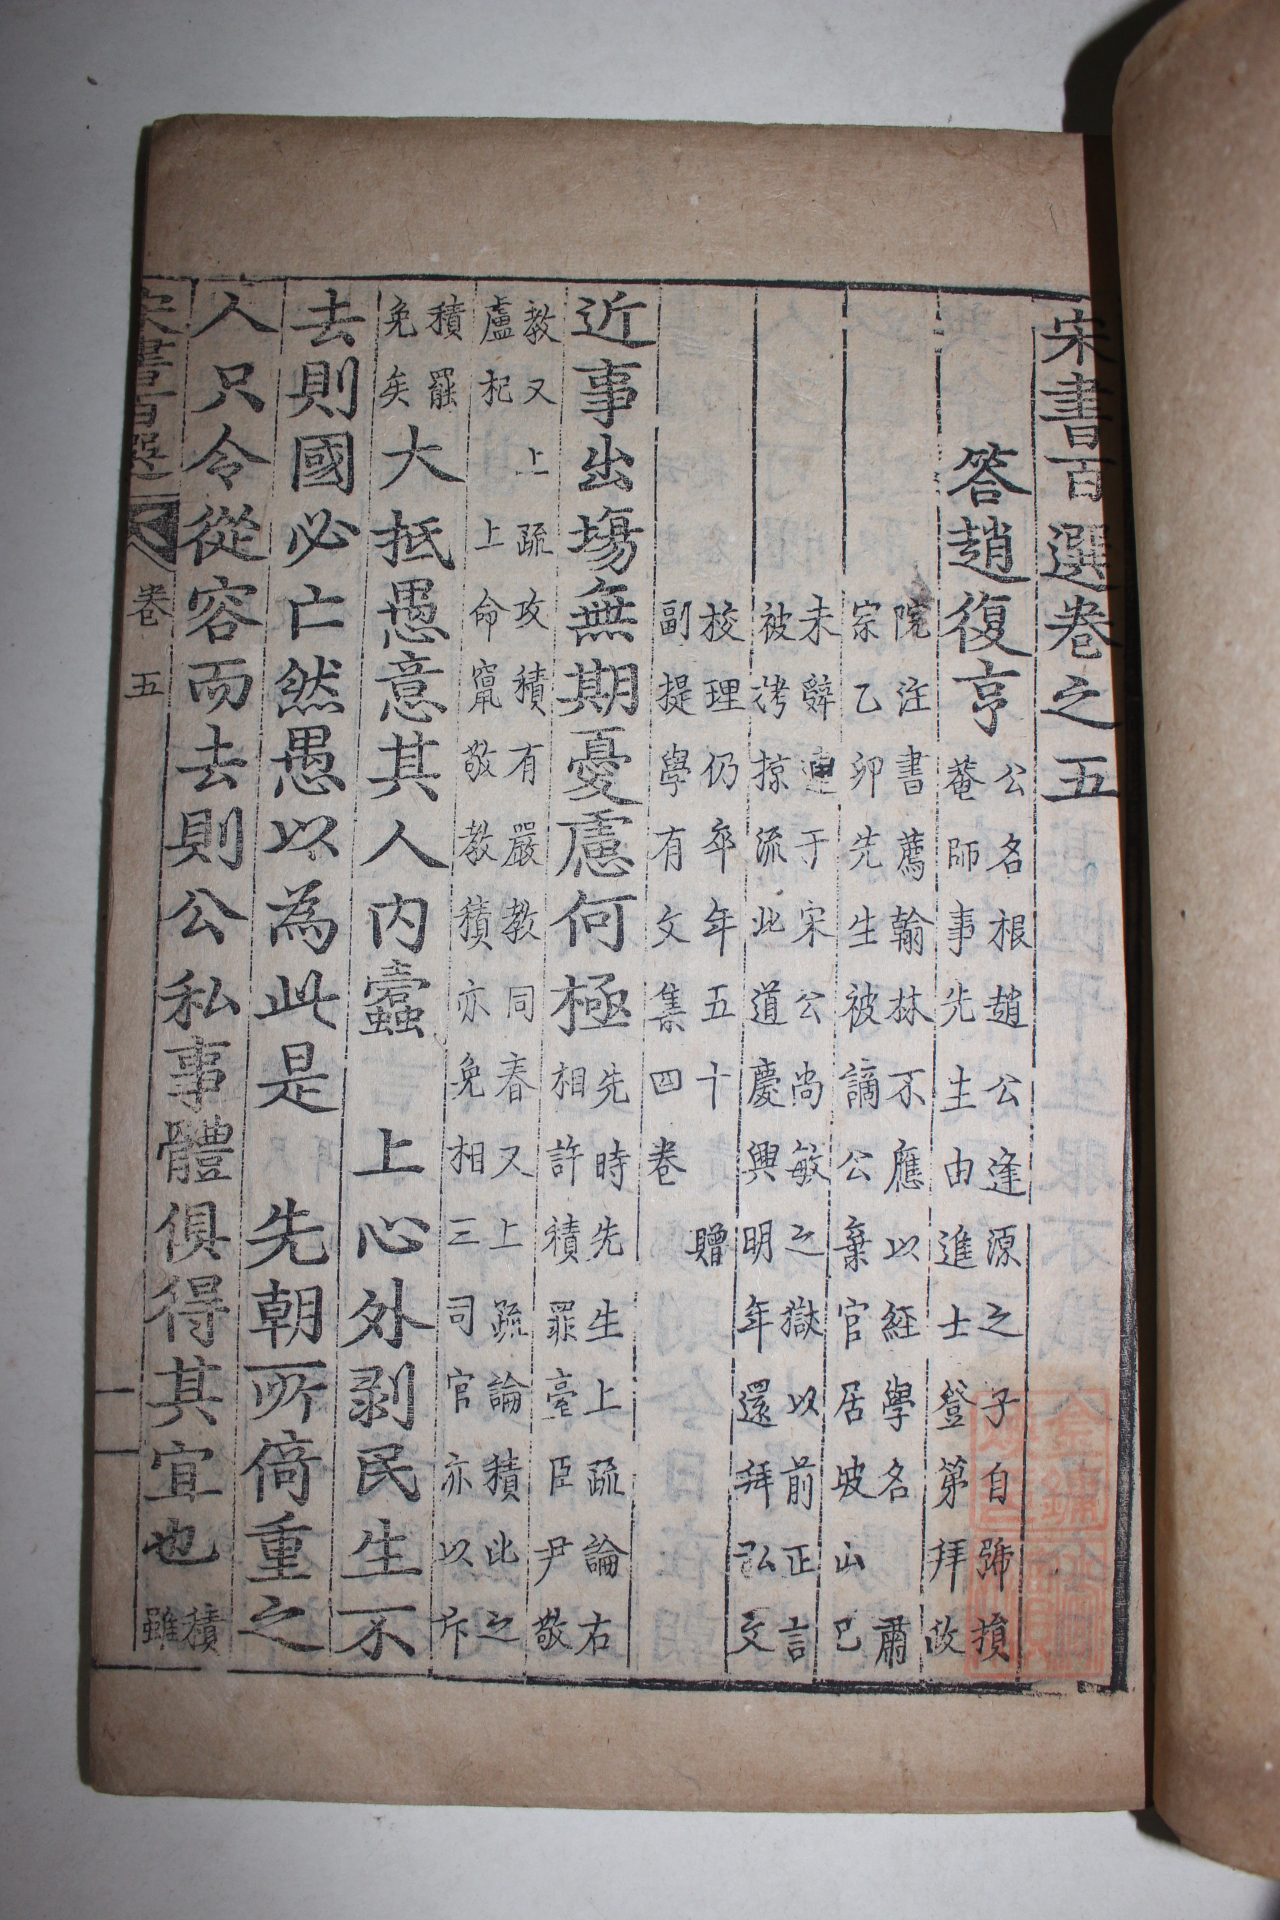 宋書百選卷之五
答趙復亨
公名根趙公逢源之子自號損
菴師事先生由進士登第拜政
院注書薦翰林不應以經學名 肅
宗乙卯先生被謫公棄官居坡山已
未辭連于宋公尚敏之獄以前正言
被拷掠流北道慶興明年還拜弘文
校理仍卒年五十 贈
副提學有文集四卷
近事出塲無期憂慮何極
先時先生上疏論右
相許積罪臺臣尹敬
教又上疏攻積有嚴教同春又上疏論積比之
盧杞 上命竄敬教積亦免相三司官亦以斥
積罷
免矣
大抵愚意其人內蠹 上心外剥民生不
去則國必亡然愚以為此是 先朝所倚重之
人只令從容而去則公私事體俱得其宜也
積
雖
宋書百選 卷五 一